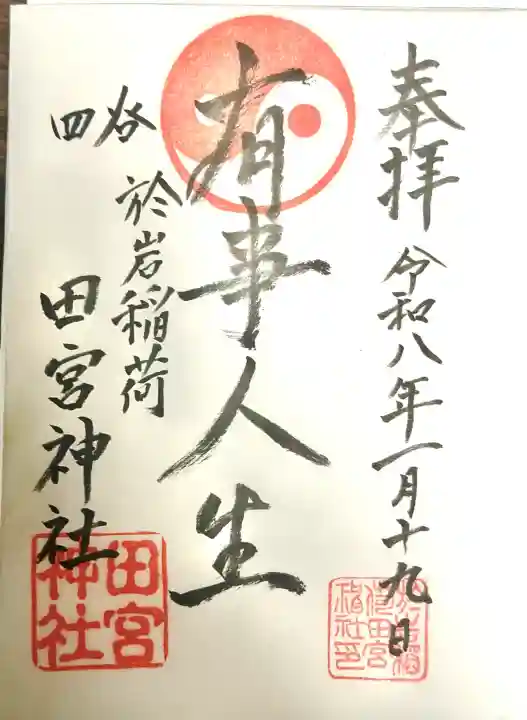 奉拝 令和八年一月十九日
有事人生
四谷
於岩稲荷
田宮神社
田宮
神社